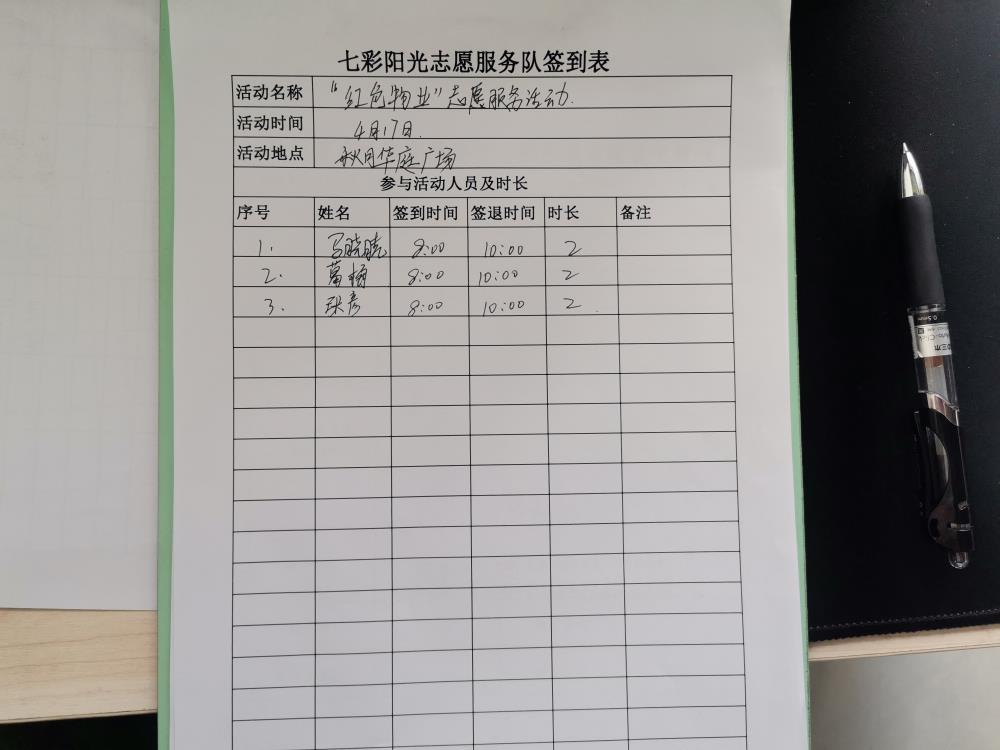 七彩阳光志愿服务队签到表
活动名称 “红色物业”志愿服务活动.
活动时间 4月17日.
活动地点 秋月华庭广场
参与活动人员及时长
序号 姓名 签到时间 签退时间 时长 备注
1. 马晓晓 8:00 10:00 2
2. 葛杨 8:00 10:00 2
3. 张彦 8:00 10:00 2
0.5mm